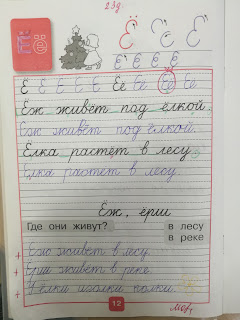 23д.
Ё ё
Ё Ё Ё
Ё Ё Ё Ё
Ё Ё Ё Ё Ё Её Ее Её Ее
Ёж живёт под ёлкой.
Ёж живёт под ёлкой.
Ёлка растёт в лесу.
Ёлка растёт в лесу
Ёж, ерш
Где они живут? в лесу
в реке
Ёж живёт в лесу.
Ёрш живёт в реке.
У ёлки иголки колки.
12